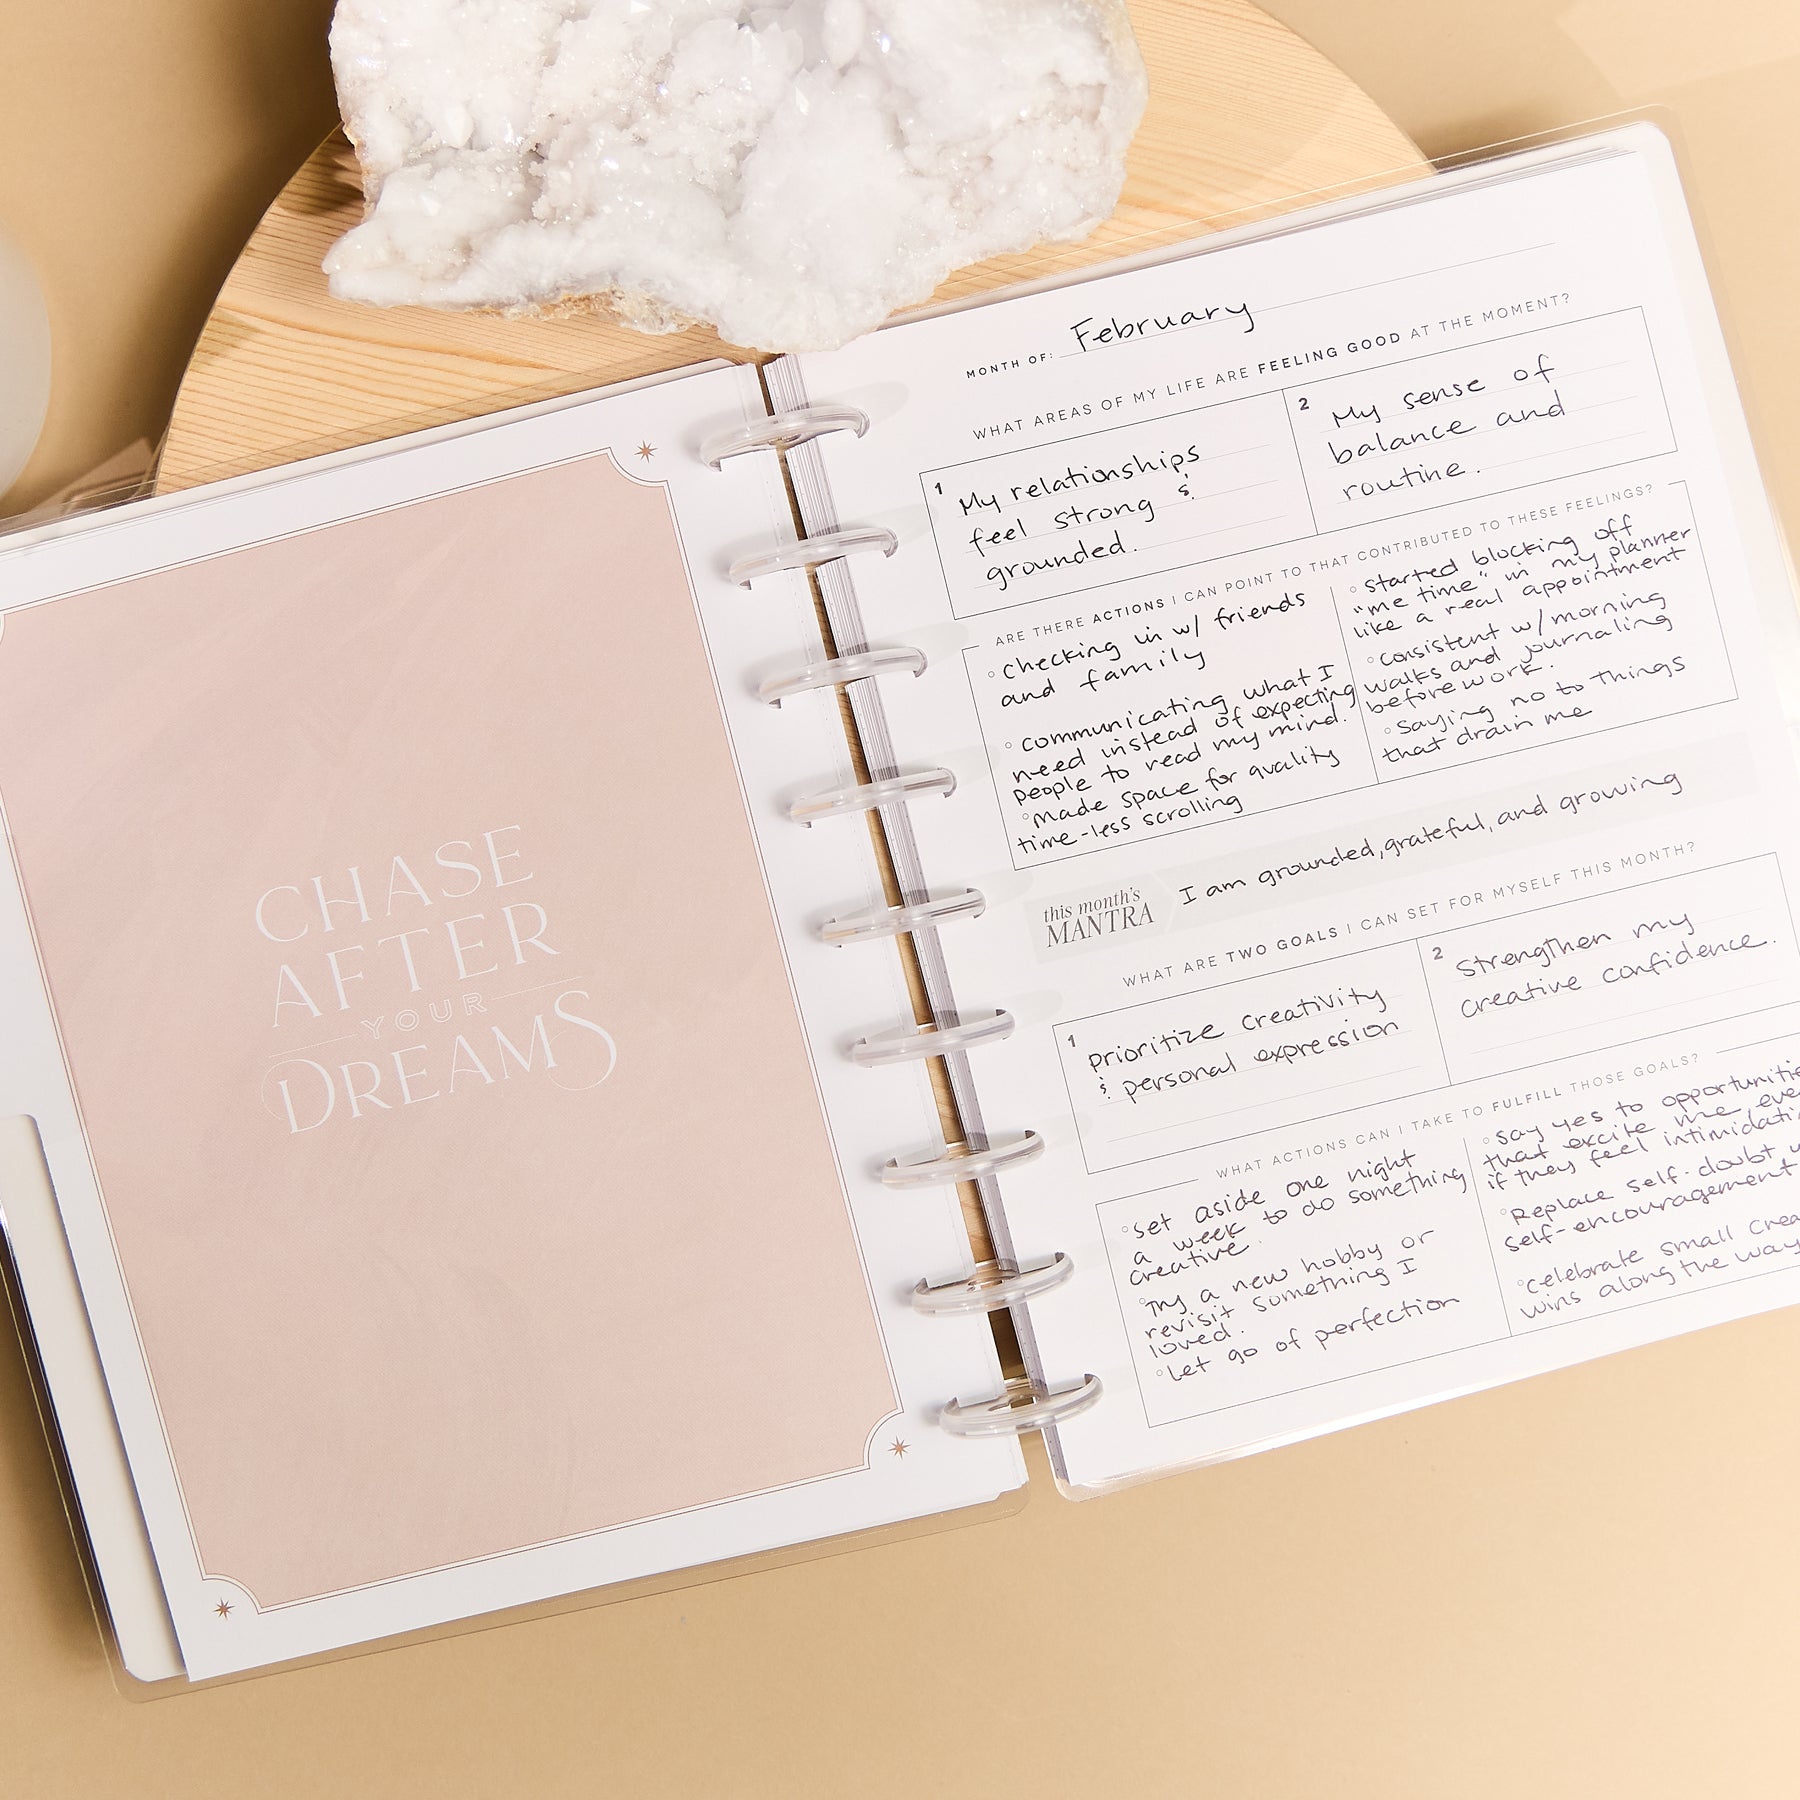 CHASE
AFTER
YOUR
DREAMS
MONTH OF: February
WHAT AREAS OF MY LIFE ARE FEELING GOOD AT THE MOMENT?
1
My relationships
feel strong &
grounded.
2
My sense of
balance and
routine.
ARE THERE ACTIONS I CAN POINT TO THAT CONTRIBUTED TO THESE FEELINGS?
◦ Checking in w/ friends
and family
◦ communicating what I
need instead of expecting
people to read my mind.
◦ made space for quality
time - less scrolling
◦ started blocking off
"me time" in my planner
like a real appointment
◦ consistent w/ morning
walks and journaling
before work.
◦ Saying no to things
that drain me
this month's
MANTRA
I am grounded, grateful, and growing
WHAT ARE TWO GOALS I CAN SET FOR MYSELF THIS MONTH?
1
prioritize creativity
& personal expression
2
Strengthen my
creative confidence.
WHAT ACTIONS CAN I TAKE TO FULFILL THOSE GOALS?
◦ Set aside one night
a week to do something
creative.
◦ Try a new hobby or
revisit something I
loved.
◦ Let go of perfection
◦ Say yes to opportunitie
that excite me eve
if they feel intimidati
◦ Replace self-doubt
self-encouragement
◦ Celebrate small crea
wins along the way